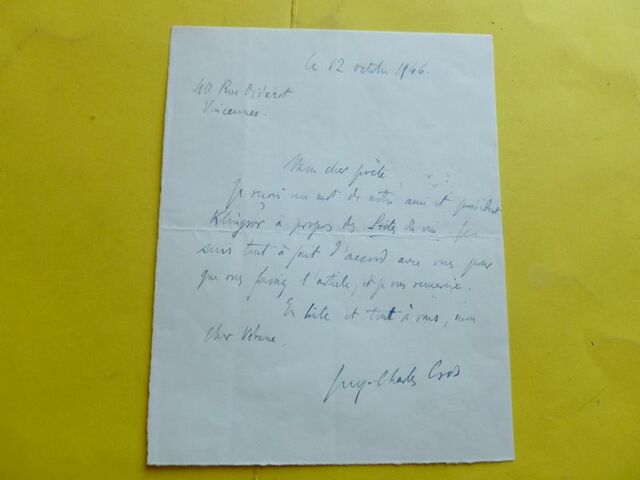 le 12 octobre 1946.
40 Rue Diderot
Vincennes.
Mon cher poète
Je reçois un mot de notre ami et président
Klingsor à propos des Poètes du vin. Je
suis tout à fait d'accord avec vous pour
que vous fassiez l'article, et je vous remercie.
En hâte et tout à vous, mon
cher Vérane,
Guy-Charles Cros